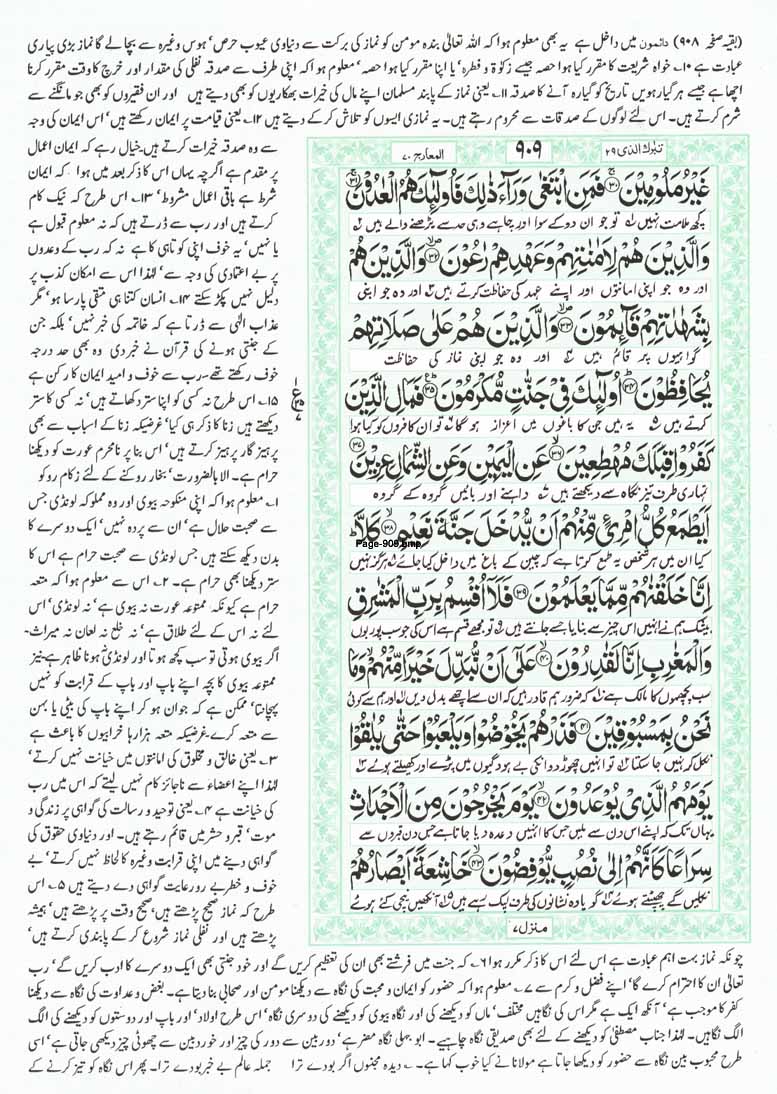 (بقیہ صفحہ ۹۰۸) دائمون میں داخل ہے یہ بھی معلوم ہوا کہ اللہ تعالیٰ بندہ مومن کو نماز کی برکت سے دنیاوی عیوب حرص' ہوس وغیرہ سے بچا لے گا نماز بڑی پیاری
عبادت ہے ۱۰۔ خواہ شریعت کا مقرر کیا ہوا حصہ جیسے زکوٰۃ و فطرہ' یا اپنا مقرر کیا ہوا حصہ' معلوم ہوا کہ اپنی طرف سے صدقہ نفلی کی مقدار اور خرچ کا وقت مقرر کرنا
اچھا ہے جیسے ہر گیارہویں تاریخ کو گیارہ آنے کا صدقہ ۱۱۔ یعنی نماز کے پابند مسلمان اپنے مال کی خیرات بھکاریوں کو بھی دیتے ہیں اور ان فقیروں کو بھی جو مانگنے سے
شرم کرتے ہیں۔ اس لئے لوگوں کے صدقات سے محروم رہتے ہیں۔ یہ نمازی ایسوں کو تلاش کر کے دیتے ہیں ۱۲۔ یعنی قیامت پر ایمان رکھتے ہیں' اس ایمان کی وجہ
سے وہ صدقہ خیرات کرتے ہیں۔ خیال رہے کہ ایمان اعمال
پر مقدم ہے اگرچہ یہاں اس کا ذکر بعد میں ہوا کہ ایمان
شرط ہے باقی اعمال مشروط' ۱۳۔ اس طرح کہ نیک کام
کرتے ہیں اور رب سے ڈرتے ہیں کہ نہ معلوم قبول ہے
یا نہیں' یہ خوف اپنی کوتاہی کا ہے نہ کہ رب کے وعدوں
پر بے اعتمادی کی وجہ سے' لہٰذا اس سے امکان کذب پر
دلیل نہیں پکڑ سکتے ۱۴۔ انسان کتنا ہی متقی پارسا ہو' مگر
عذاب الٰہی سے ڈرتا ہے کہ خاتمہ کی خبر نہیں' بلکہ جن
کے جنتی ہونے کی قرآن نے خبر دی وہ بھی حد درجہ
خوف رکھتے تھے۔ رب سے خوف و امید ایمان کا رکن ہے
۱۵۔ اس طرح نہ کسی کو اپنا ستر دکھاتے ہیں' نہ کسی کا ستر
دیکھتے ہیں زنا کا ذکر ہی کیا' غرضیکہ زنا کے اسباب سے بھی
پرہیز گار پرہیز کرتے ہیں' اس بنا پر نامحرم عورت کو دیکھنا
حرام ہے۔ الا بالضرورت' بخار روکنے کے لئے زکام روکو
۱۔ معلوم ہوا کہ اپنی منکوحہ بیوی اور وہ مملوکہ لونڈی جس
سے صحبت حلال ہے' ان سے پردہ نہیں' ایک دوسرے کا
بدن دیکھ سکتے ہیں جس لونڈی سے صحبت حرام ہے اس کا
ستر دیکھنا بھی حرام ہے۔ ۲۔ اس سے معلوم ہوا کہ متعہ
حرام ہے کیونکہ ممتوعہ عورت نہ بیوی ہے' نہ لونڈی' اس
لئے نہ اس کے لئے طلاق ہے' نہ خلع نہ لعان نہ میراث۔
اگر بیوی ہوتی تو سب کچھ ہوتا اور لونڈی نہ ہونا ظاہر ہے' نیز
ممتوعہ بیوی کا بچہ اپنے باپ اور باپ کے قرابت کو نہیں
پہچانتا' ممکن ہے کہ جوان ہو کر اپنے باپ کی بیٹی یا بہن
سے متعہ کرے۔ غرضیکہ متعہ ہزارہا خرابیوں کا باعث ہے
۳۔ یعنی خالق و مخلوق کی امانتوں میں خیانت نہیں کرتے'
لہٰذا اپنے اعضاء سے ناجائز کام نہیں لیتے کہ اس میں رب
کی خیانت ہے ۴۔ یعنی توحید و رسالت کی گواہی پر زندگی و
موت' قبر و حشر میں قائم رہتے ہیں۔ اور دنیاوی حقوق کی
گواہی دینے میں اپنی قرابت وغیرہ کا لحاظ نہیں کرتے' بے
خوف و خطر بے رو رعایت گواہی دے دیتے ہیں ۵۔ اس
طرح کہ نماز صحیح پڑھتے ہیں' صحیح وقت پر پڑھتے ہیں' ہمیشہ
پڑھتے ہیں اور نفلی نماز شروع کر کے پابندی کرتے ہیں'
تبٰرک الذی ۲۹
۹۰۹
المعارج ۷۰
غَيْرُ مَلُوْمِيْنَ ﴿۳۰﴾ فَمَنِ ابْتَغٰى وَرَآءَ ذٰلِكَ فَاُولٰٓئِكَ هُمُ الْعٰدُوْنَ ﴿۳۱﴾
کچھ ملامت نہیں تو جو ان دو کے سوا اور چاہے وہی حد سے بڑھنے والے ہیں
وَالَّذِيْنَ هُمْ لِاَمٰنٰتِهِمْ وَعَهْدِهِمْ رٰعُوْنَ ﴿۳۲﴾ وَالَّذِيْنَ هُمْ
اور وہ جو اپنی امانتوں اور اپنے عہد کی حفاظت کرتے ہیں اور وہ جو اپنی
بِشَهٰدٰتِهِمْ قَآئِمُوْنَ ﴿۳۳﴾ وَالَّذِيْنَ هُمْ عَلٰى صَلَاتِهِمْ
گواہیوں پر قائم ہیں اور وہ جو اپنی نماز کی حفاظت
يُحَافِظُوْنَ ﴿۳۴﴾ اُولٰٓئِكَ فِيْ جَنّٰتٍ مُّكْرَمُوْنَ ﴿۳۵﴾ فَمَالِ الَّذِيْنَ
کرتے ہیں یہ ہیں جن کا باغوں میں اعزاز ہو گا تو ان کافروں کو کیا ہوا
كَفَرُوْا قِبَلَكَ مُهْطِعِيْنَ ﴿۳۶﴾ عَنِ الْيَمِيْنِ وَعَنِ الشِّمَالِ عِزِيْنَ ﴿۳۷﴾
تمہاری طرف تیز نگاہ سے دیکھتے ہیں داہنے اور بائیں گروہ کے گروہ
اَيَطْمَعُ كُلُّ امْرِئٍ مِّنْهُمْ اَنْ يُّدْخَلَ جَنَّةَ نَعِيْمٍ ﴿۳۸﴾ كَلَّا
Page-909.bmp
کیا ان میں ہر شخص یہ طمع کرتا ہے کہ چین کے باغ میں داخل کیا جائے ہرگز نہیں
اِنَّا خَلَقْنٰهُمْ مِّمَّا يَعْلَمُوْنَ ﴿۳۹﴾ فَلَآ اُقْسِمُ بِرَبِّ الْمَشٰرِقِ
بیشک ہم نے انہیں اس چیز سے بنایا جسے جانتے ہیں تو مجھے قسم ہے اس کی جو سب پوربوں
وَالْمَغٰرِبِ اِنَّا لَقٰدِرُوْنَ ﴿۴۰﴾ عَلٰٓى اَنْ نُّبَدِّلَ خَيْرًا مِّنْهُمْ وَمَا
سب پچھموں کا مالک ہے کہ ضرور ہم قادر ہیں کہ ان سے اچھے بدل دیں اور ہم سے کوئی
نَحْنُ بِمَسْبُوْقِيْنَ ﴿۴۱﴾ فَذَرْهُمْ يَخُوْضُوْا وَيَلْعَبُوْا حَتّٰى يُلٰقُوْا
نکل کر نہیں جا سکتا تو انہیں چھوڑ دو انکی بے ہودگیوں میں پڑے اور کھیلتے ہوئے
يَوْمَهُمُ الَّذِيْ يُوْعَدُوْنَ ﴿۴۲﴾ يَوْمَ يَخْرُجُوْنَ مِنَ الْاَجْدَاثِ
یہاں تک کہ اپنے اس دن سے ملیں جس کا انہیں وعدہ دیا جاتا ہے جس دن قبروں سے
سِرَاعًا كَاَنَّهُمْ اِلٰى نُصُبٍ يُّوْفِضُوْنَ ﴿۴۳﴾ خَاشِعَةً اَبْصَارُهُمْ
نکلیں گے جھپٹتے ہوئے گویا وہ نشانوں کی طرف لپک رہے ہیں آنکھیں نیچی کئے ہوئے
منزل ۷
چونکہ نماز بہت اہم عبادت ہے اس لئے اس کا ذکر مکرر ہوا ۶۔ کہ جنت میں فرشتے بھی ان کی تعظیم کریں گے اور خود جنتی بھی ایک دوسرے کا ادب کریں گے' رب
تعالیٰ ان کا احترام کرے گا' اپنے فضل و کرم سے ۷۔ معلوم ہوا کہ حضور کو ایمان و محبت کی نگاہ سے دیکھنا مومن اور صحابی بنا دیتا ہے۔ بغض و عداوت کی نگاہ سے دیکھنا
کفر کا موجب ہے' آنکھ ایک ہے مگر اس کی نگاہیں مختلف' ماں کو دیکھنے کی اور نگاہ بیوی کو دیکھنے کی دوسری نگاہ' اس طرح اولاد' اور باپ اور دوستوں کو دیکھنے کی الگ
الگ نگاہیں۔ لہٰذا جناب مصطفیٰ کو دیکھنے کے لئے بھی صدیقی نگاہ چاہیے۔ ابو جہلی نگاہ مضر ہے' دوربین سے دور کی چیز اور خوردبین سے چھوٹی چیز دیکھی جاتی ہے' اسی
طرح محبوب بین نگاہ سے حضور کو دیکھا جاتا ہے مولانا نے کیا خوب کہا ہے۔ دیدہ مجنوں اگر بودے ترا جملہ عالم بے خبر بودے ترا۔ پھر اس نگاہ کو تیز کرنے کے